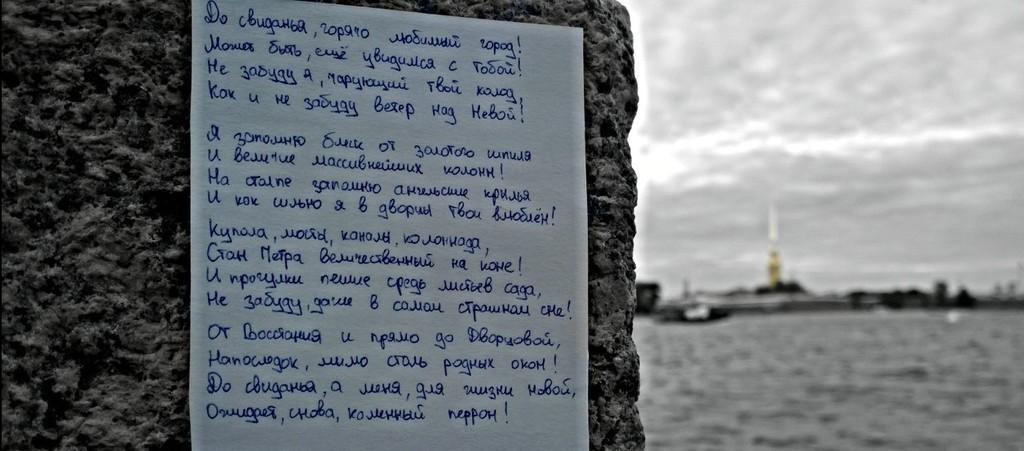 До свиданья, горячо любимый город!
Может быть, ещё увидимся с тобой!
Не забуду я, чарующий твой холод,
Как и не забуду ветер над Невой!
Я запомню блеск от золотого шпиля
И величие массивнейших колонн!
На столпе запомню ангельские крылья
И как сильно я в дворцы твои влюблён!
Купола, мосты, каналы, колоннада,
Стан Петра величественный на коне!
И прогулки пешие средь листьев сада,
Не забуду, даже в самом страшном сне!
От Восстания и прямо до Дворцовой,
Напоследок, мимо столь родных окон!
До свиданья, а меня, для жизни новой,
Ожидает, снова, каменный перрон!